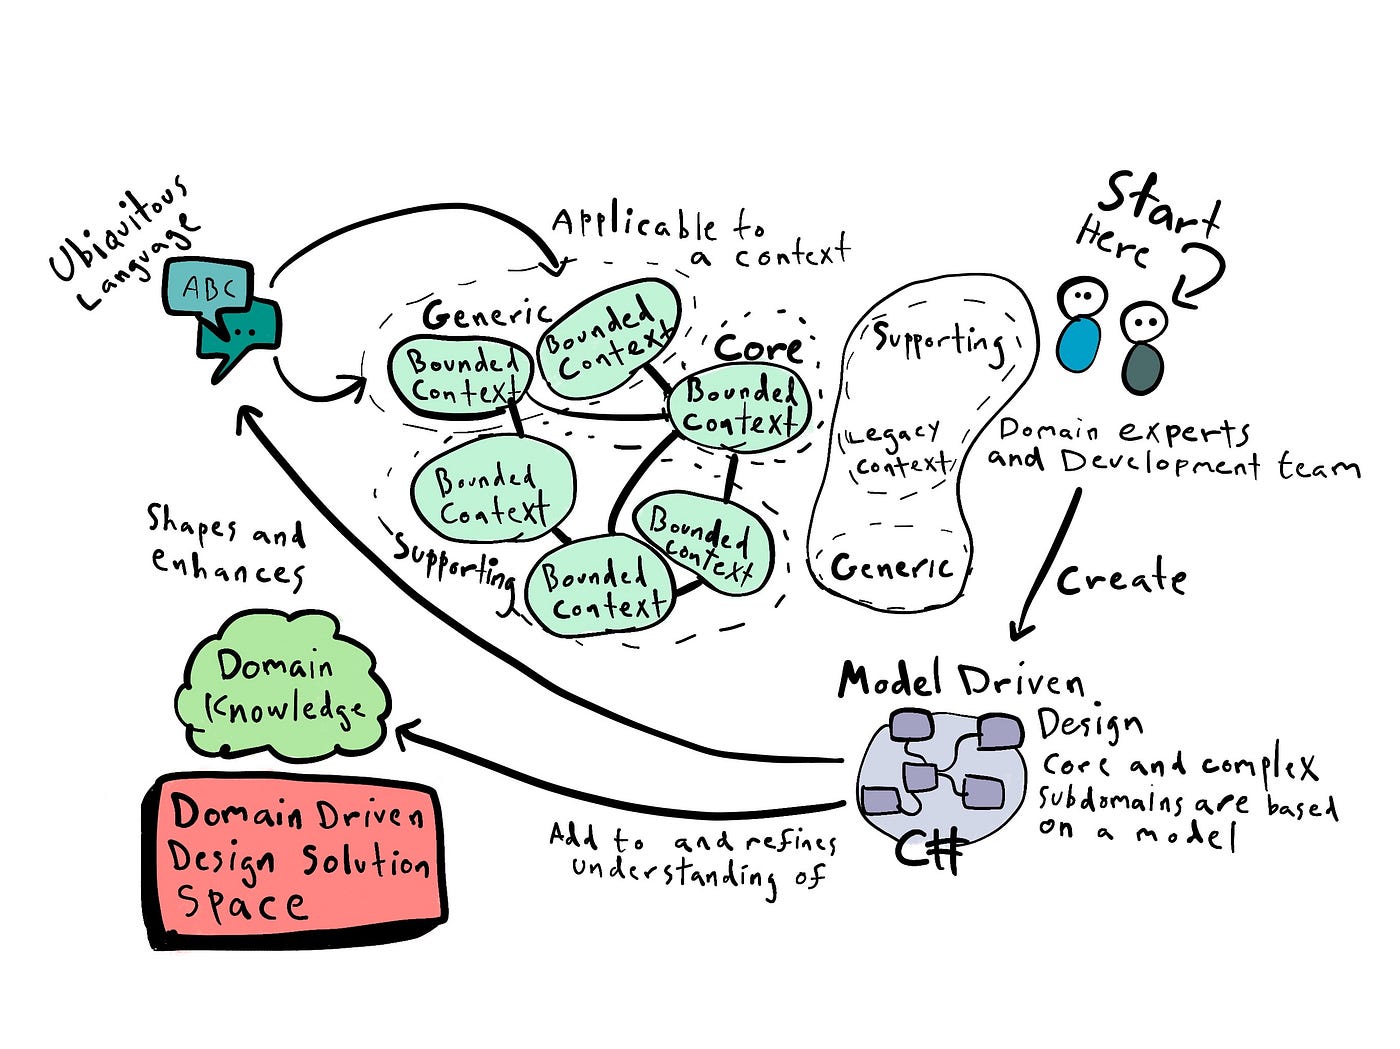 Ubiquitous
Language
ABC
Applicable to
a context
Generic
Bounded
Context
Bounded
Context
Core
Bounded
Context
Bounded
Context
Supporting
Bounded
Context
Bounded
Context
Supporting
Legacy
context
Generic
Start
Here
Domain experts
and Development team
Create
Model Driven
Design
Core and complex
subdomains are based
on a model
C#
Shapes and
enhances
Domain
Knowledge
Add to and refines
understanding of
Domain Driven
Design Solution
Space